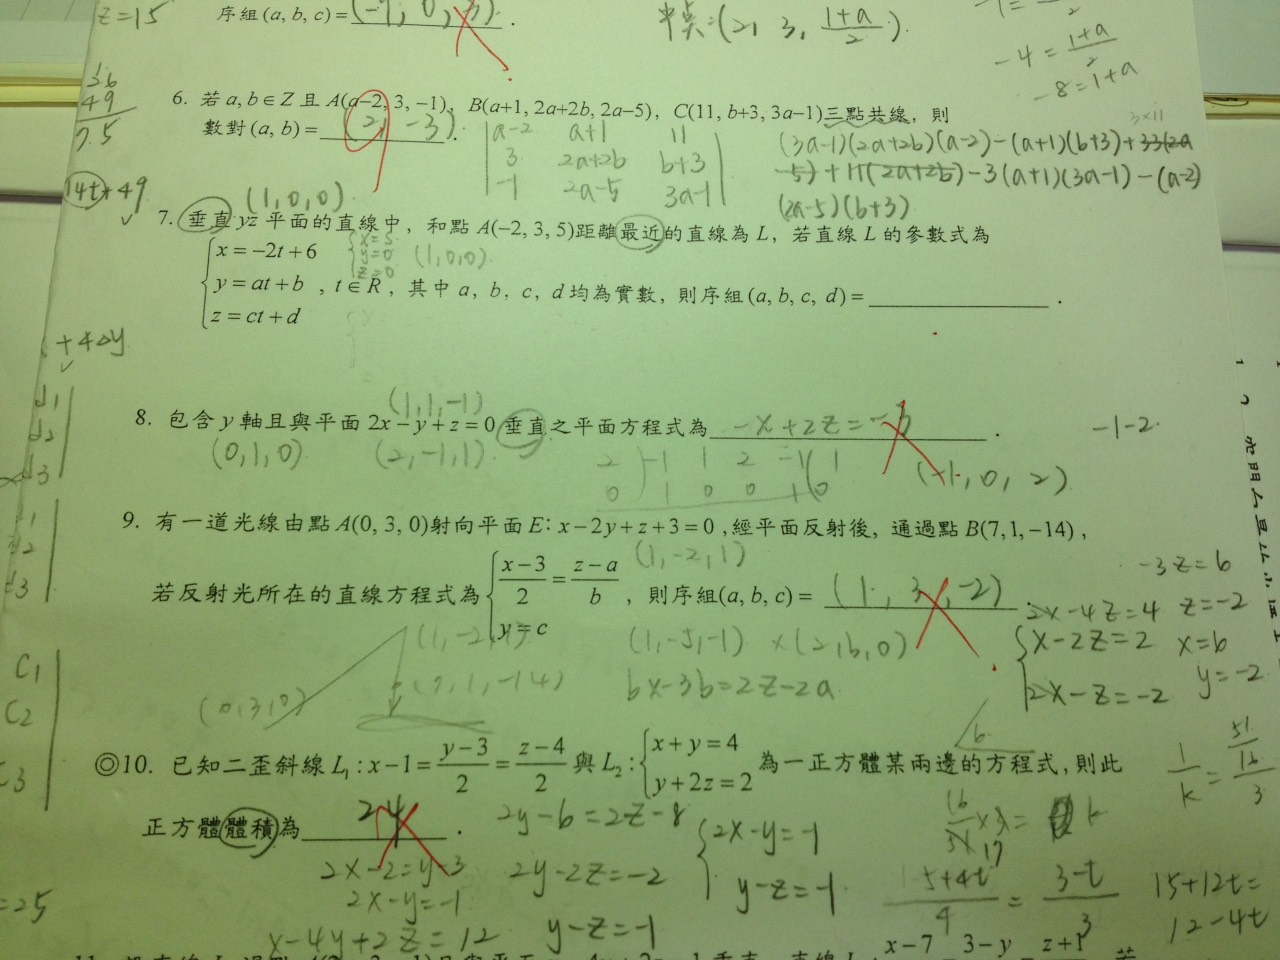 z=15
序組(a, b, c)=(-7, 0, -3).
中點:(2, 3, \frac{1+a}{2}).
-4=\frac{1+a}{2}
-8=1+a
36
49
7.5
14t+49
6. 若 a, b∈Z 且 A(a-2, 3, -1), B(a+1, 2a+2b, 2a-5), C(11, b+3, 3a-1)三點共線, 則
數對(a, b)=(2, -3).
a-2 a+1 11
3 2a+2b b+3
-1 2a-5 3a-1
3×11
(3a-1)(2a+2b)(a-2)-(a+1)(b+3)+33(2a
-5)+11(2a+2b)-3(a+1)(3a-1)-(a-2)
(2a-5)(b+3)
(1,0,0)
7. 垂直 yz 平面的直線中, 和點 A(-2, 3, 5)距離最近的直線為 L, 若直線 L 的參數式為
x=-2t+6
y=at+b , t∈R, 其中 a, b, c, d 均為實數, 則序組(a, b, c, d)=.
z=ct+d
x=5
y=0
z=0
(1,0,0)
+4△y
(1,1,-1)
8. 包含 y 軸且與平面 2x-y+z=0 垂直之平面方程式為 -x+2z=-3.
-1-2
(0,1,0) (2,-1,1)
2 -1 1 2 -1 1
0 1 0 0 1 0
(-1,0,2)
9. 有一道光線由點 A(0, 3, 0)射向平面 E: x-2y+z+3=0, 經平面反射後, 通過點 B(7, 1, -14),
(1,-2,1)
若反射光所在的直線方程式為 \frac{x-3}{2}=\frac{z-a}{b} , 則序組(a, b, c)=(1, 3, -2).
y=c
-3z=6
2x-4z=4 z=-2
x-2z=2 x=6
2x-z=-2 y=-2
(1,-2,1)
(1,-5,-1)×(2,b,0)
(7,1,-14)
bx-3b=2z-2a
(0,3,0)
6
C1
C2
C3
◎10. 已知二歪斜線 L₁: x-1=\frac{y-3}{2}=\frac{z-4}{2} 與 L₂: x+y=4 為一正方體某兩邊的方程式, 則此
y+2z=2
正方體體積為 24.
2y-6=2z-8
2x-y=-1
y-z=-1
2x-2=y-3
2y-2z=-2
2x-y=-1
y-z=-1
x-4y+2z=12
\frac{1}{k}=\frac{\frac{51}{16}}{3}
\frac{16}{51}×3=k
17
\frac{5+4t}{4}=\frac{3-t}{3}
15+12t=
12-4t
=25
x-7 3-y z+1